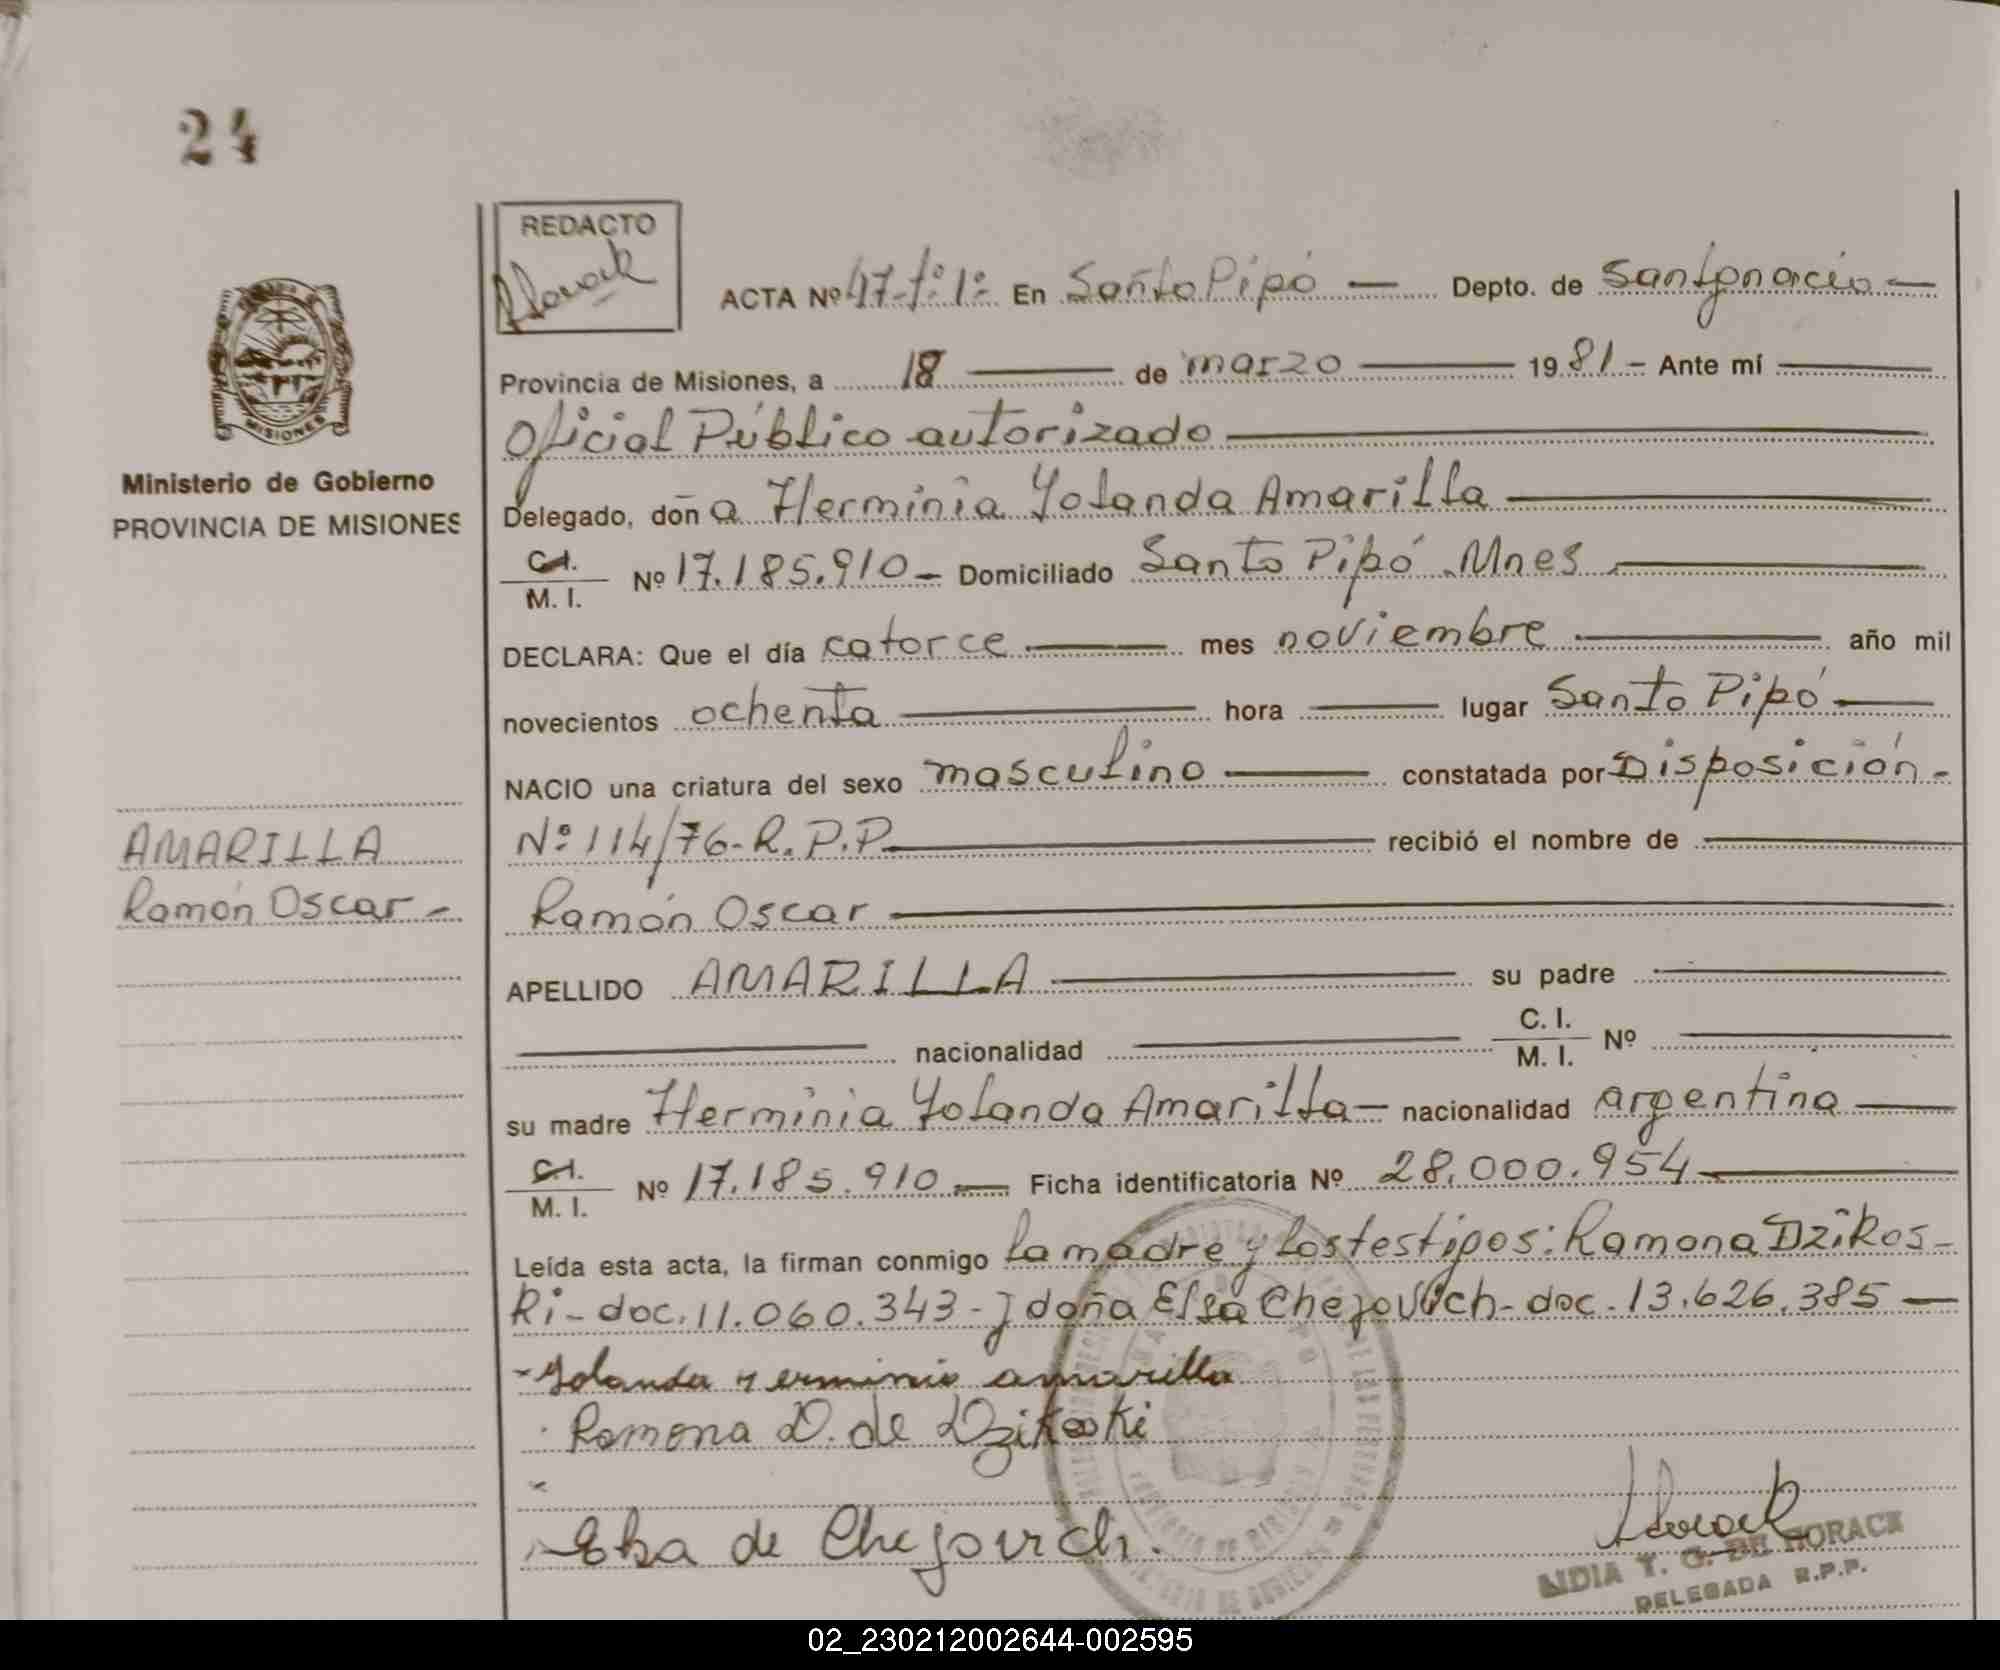 24
REDACTO
ACTA Nº 47-tº1º En Santo Pipó — Depto. de San Ignacio —
Provincia de Misiones, a 18 — de marzo — 1981 - Ante mí —
MISIONES
Oficial Público autorizado —
Ministerio de Gobierno
PROVINCIA DE MISIONES
Delegado, doña Herminia Yolanda Amarilla —
C.I. M. I. Nº 17.185.910 - Domiciliado Santo Pipó Mnes —
DECLARA: Que el día catorce — mes noviembre — año mil
novecientos ochenta — hora — lugar Santo Pipó —
NACIO una criatura del sexo masculino — constatada por Disposición -
Nº 114/76- R. P. P. — recibió el nombre de —
Ramón Oscar —
AMARILLA
Ramón Oscar -
APELLIDO AMARILLA — su padre —
— nacionalidad — C. I. M. I. Nº —
su madre Herminia Yolanda Amarilla — nacionalidad argentina —
C.I. M. I. Nº 17.185.910 — Ficha identificatoria Nº 28.000.954 —
Leída esta acta, la firman conmigo la madre y los testigos: Ramona Dzikos-
Ki - doc. 11.060.343 - y doña Elsa Chejovich - doc. 13.626.385 —
- Yolanda Yerminia amarilla
Ramona D. de Dzikoski
Elsa de Chejovich.
LIDIA T. G. DE HORACK
DELEGADA R.P.P.
02_230212002644-002595